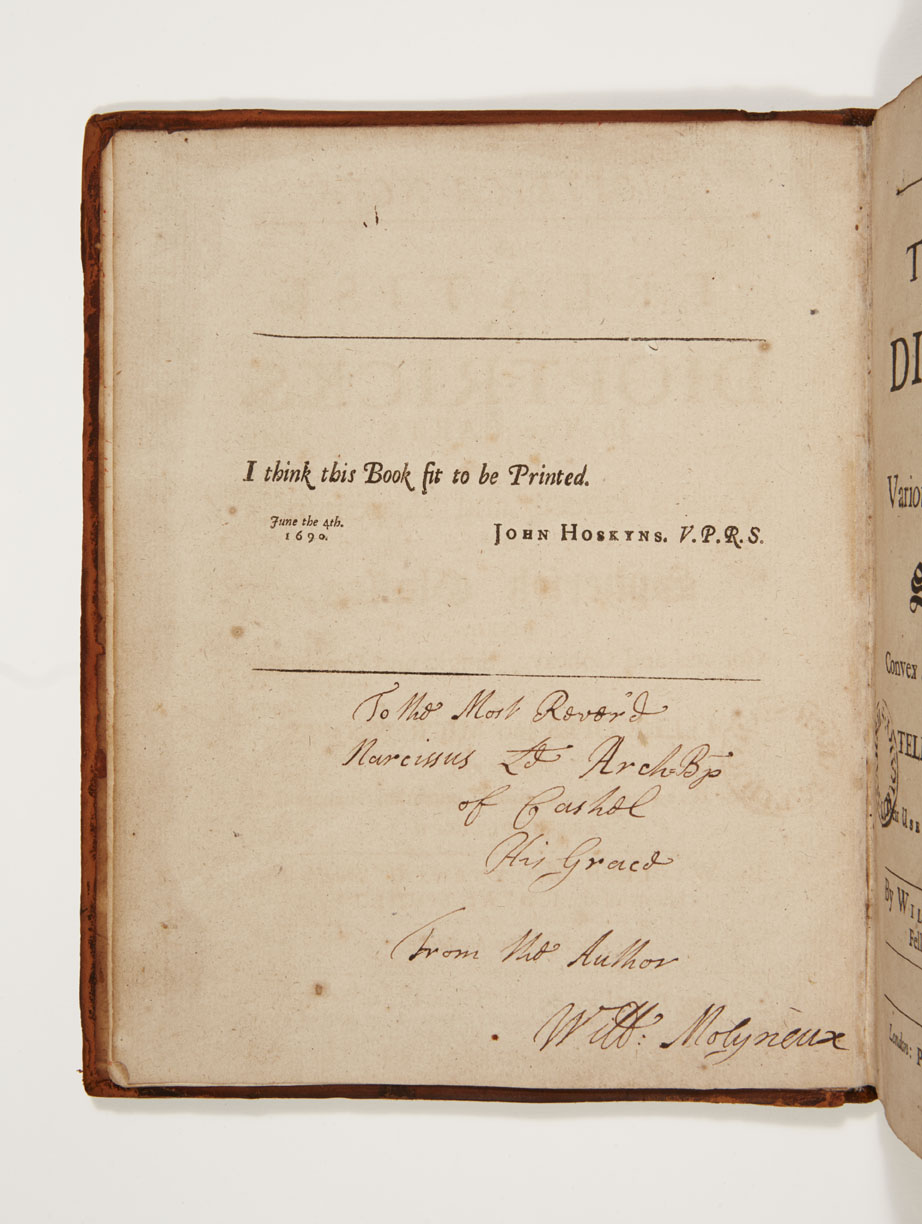 I think this Book fit to be Printed.
June the 4th.
1690.
JOHN HOSKYNS. V.P.R.S.
To the Most Rever'd
Narcissus Ld Arch-Bp
of Cashel
His Grace
From the Author
Will: Molyneux
T
DI
Vario
Convex
TEL
By WIL
Fell
London: P